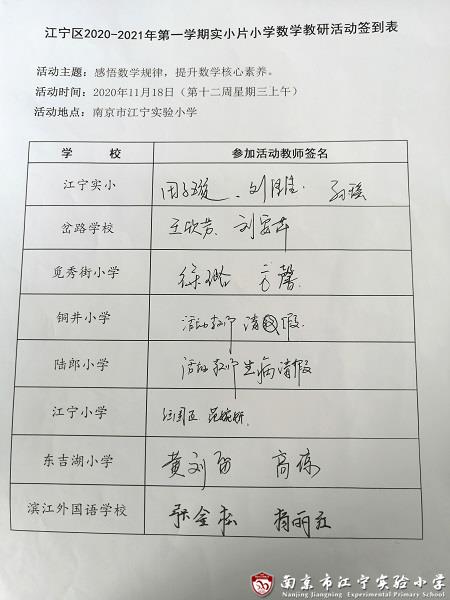 江宁区2020-2021年第一学期实小片小学数学教研活动签到表
活动主题：感悟数学规律，提升数学核心素养。
活动时间：2020年11月18日（第十二周星期三上午）
活动地点：南京市江宁实验小学
学 校 参加活动教师签名
江宁实小
岔路学校 王欣芳、刘
觅秀街小学 徐璐 方馨
铜井小学 活动教师请假
陆郎小学 活动教师生病请假
江宁小学
东吉湖小学 黄刘留 高
滨江外国语学校 张金松 杨丽
南京市江宁实验小学
Nanjing Jiangning Experimental Primary School